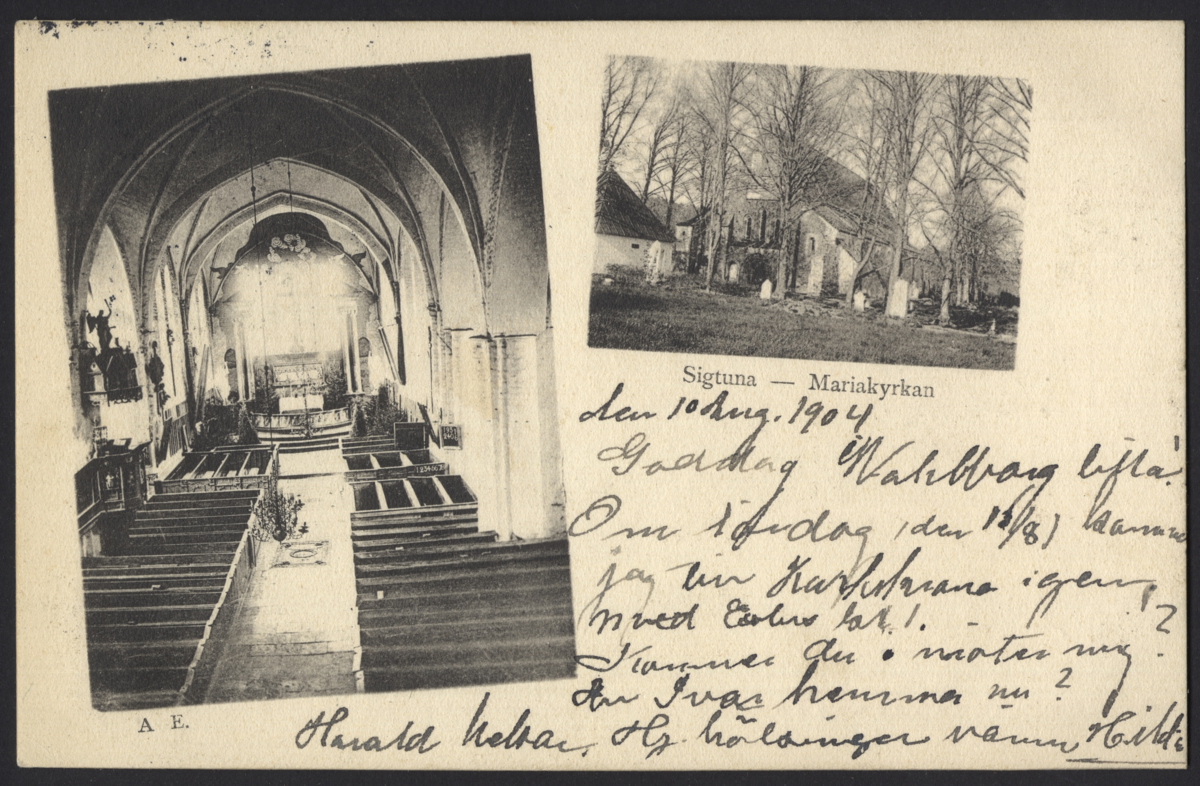 Sigtuna — Mariakyrkan
den 10 Aug. 1904
Goddag Wahlborg
Om lördag, den 13/8,
jag till Karlskrona igen,
med
Kommer du o möter mig?
Är Ivar hemma nu?
A E.
Harald helsar, Hj. hälsningar vännen Hilda